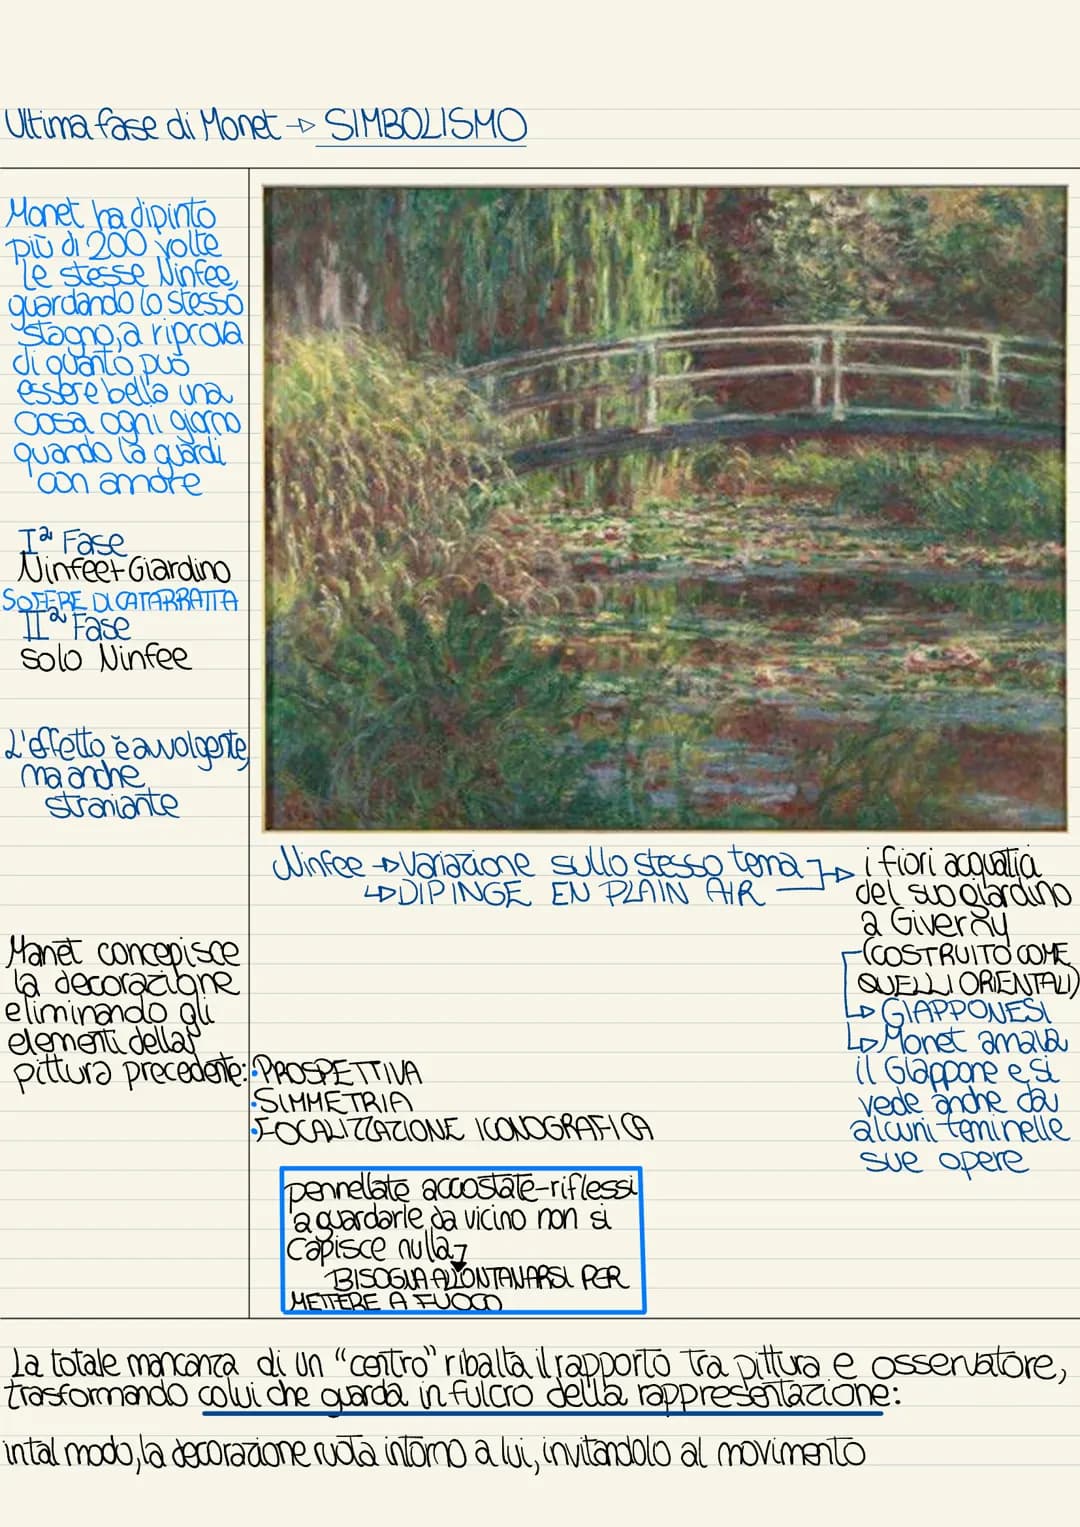 Ultima fase di Monet → SIMBOLISMO
Monet ha dipinto
più di 200 volte
le stesse Ninfee,
guardando lo stesso
stagno, a riprova
di quanto può
essere bella una
cosa ogni giorno
quando la guardi
con amore
Iª Fase
Ninfee+Giardino
SOFFRE DI CATARRATTA
IIª Fase
solo Ninfee
L'effetto è avvolgente,
ma anche
straniante
Ninfee → Variazione sullo stesso tema
↳ DIPINGE EN PLAIN AIR
→ i fiori acquatici
del suo giardino
a Giverny
(COSTRUITO COME
QUELLI ORIENTALI)
↳ GIAPPONESI
↳ Monet amava
il Giappone e si
vede anche da
alcuni temi nelle
sue opere
Manet concepisce
la decorazione
eliminando gli
elementi della
pittura precedente:
•PROSPETTIVA
•SIMMETRIA
•FOCALIZZAZIONE ICONOGRAFICA
pennellate accostate-riflessi
a guardarle da vicino non si
capisce nulla
BISOGNA ALLONTANARSI PER
METTERE A FUOCO
La totale mancanza di un "centro" ribalta il rapporto tra pittura e osservatore,
trasformando colui che guarda in fulcro della rappresentazione:
in tal modo, la decorazione ruota intorno a lui, invitandolo al movimento